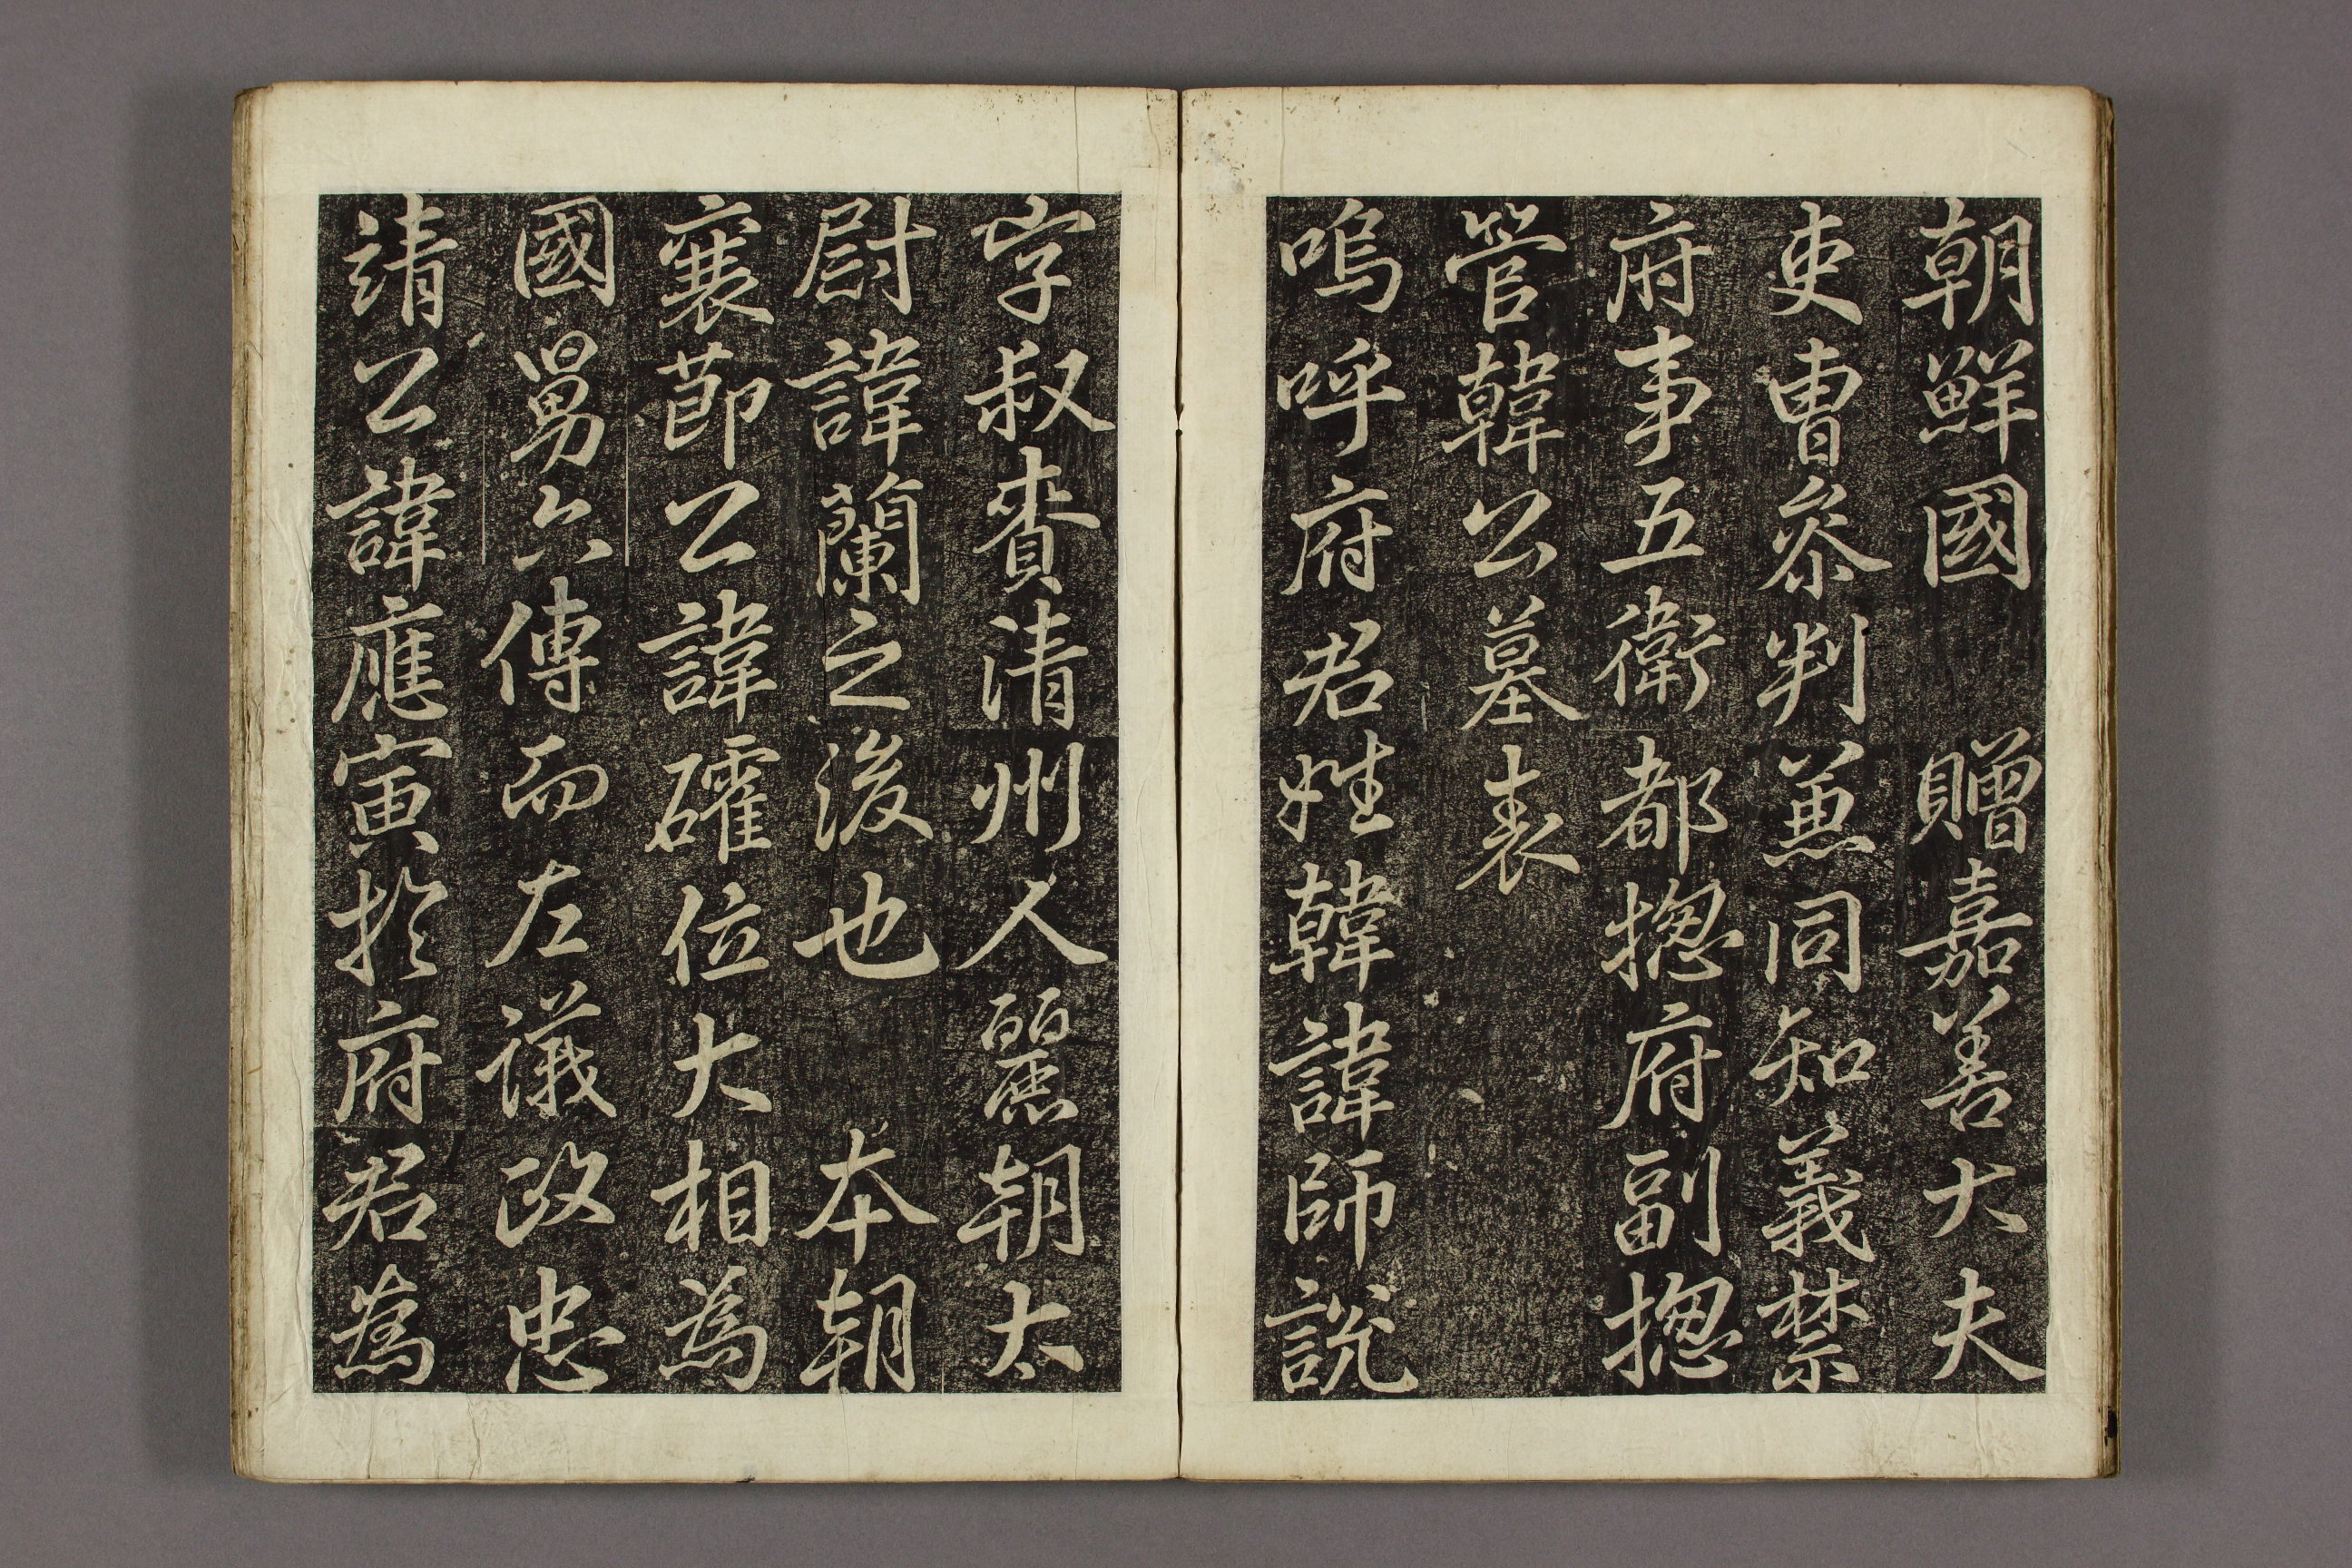 朝鮮國 贈嘉善大夫
吏曹叅判兼同知義禁
府事五衛都摠府副摠
管韓公墓表
嗚呼府君姓韓諱師說
字叔賚清州人麗朝太
尉諱蘭之後也 本朝
襄莭公諱確位大相爲
國舅六傳而左議政忠
靖公諱應寅於府君爲